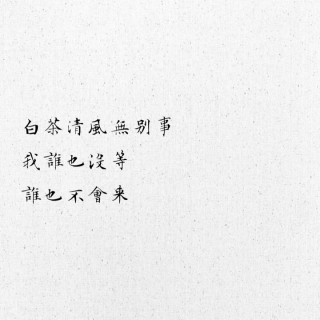 白茶清風無别事
我誰也沒等
誰也不會来